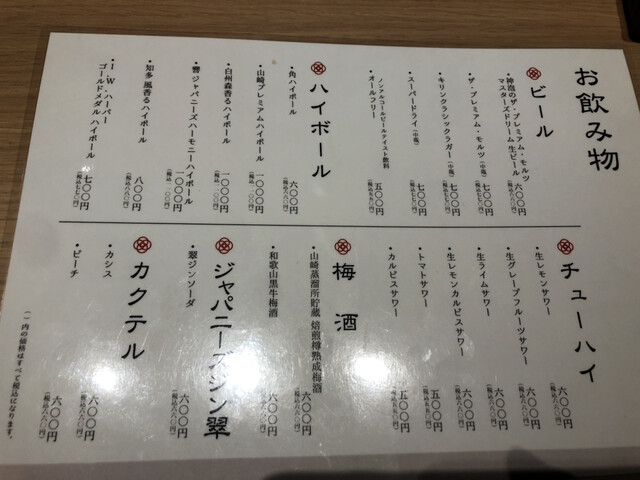 お飲み物
ビール
・神泡のザ・プレミアム・モルツ
マスターズドリーム 生ビール
六〇〇円
(税込六六〇円)
・ザ・プレミアム・モルツ(中瓶)
七〇〇円
(税込七七〇円)
・キリンクラシックラガー(中瓶)
七〇〇円
(税込七七〇円)
・スーパードライ(中瓶)
七〇〇円
(税込七七〇円)
ノンアルコールビールテイスト飲料
・オールフリー
五〇〇円
(税込五五〇円)
ハイボール
・角ハイボール
六〇〇円
(税込六六〇円)
・山崎プレミアムハイボール
一〇〇〇円
(税込一一〇〇円)
・白州森香るハイボール
一〇〇〇円
(税込一一〇〇円)
・響 ジャパニーズハーモニーハイボール
一〇〇〇円
(税込一一〇〇円)
・知多 風香るハイボール
八〇〇円
(税込八八〇円)
・I.W.ハーパー
ゴールドメダル ハイボール
七〇〇円
(税込七七〇円)
チューハイ
・生レモンサワー
六〇〇円
(税込六六〇円)
・生グレープフルーツサワー
六〇〇円
(税込六六〇円)
・生ライムサワー
六〇〇円
(税込六六〇円)
・生レモンカルピスサワー
六〇〇円
(税込六六〇円)
・トマトサワー
五〇〇円
(税込五五〇円)
・カルピスサワー
五〇〇円
(税込五五〇円)
梅酒
・山崎蒸溜所貯蔵 焙煎樽熟成梅酒
六〇〇円
(税込六六〇円)
・和歌山黒牛梅酒
六〇〇円
(税込六六〇円)
ジャパニーズジン翠
・翠ジンソーダ
六〇〇円
(税込六六〇円)
カクテル
・カシス
六〇〇円
(税込六六〇円)
・ピーチ
六〇〇円
(税込六六〇円)
( )内の価格はすべて税込になります。